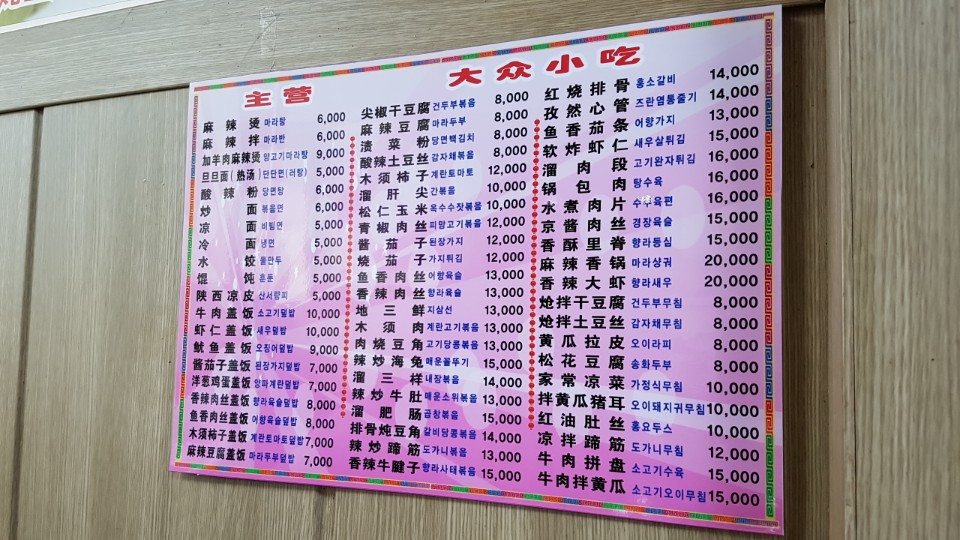 主营
麻辣烫 마라탕 6,000
麻辣拌 마라반 6,000
加羊肉麻辣烫 양고기마라탕 9,000
旦旦面(热汤) 단단면(러탕) 5,000
酸辣粉 당면탕 6,000
炒面 볶음면 6,000
凉面 비빔면 5,000
冷面 냉면 5,000
水饺 물만두 5,000
馄饨 훈둔 5,000
陕西凉皮 산서량피 5,000
牛肉盖饭 소고기덮밥 10,000
虾仁盖饭 새우덮밥 10,000
鱿鱼盖饭 오징어덮밥 9,000
酱茄子盖饭 된장가지덮밥 7,000
洋葱鸡蛋盖饭 양파계란덮밥 7,000
香辣肉丝盖饭 향라육슬덮밥 8,000
鱼香肉丝盖饭 어향육슬덮밥 8,000
木须柿子盖饭 계란토마토덮밥 7,000
麻辣豆腐盖饭 마라두부덮밥 7,000
大众小吃
尖椒干豆腐 건두부볶음 8,000
麻辣豆腐 마라두부 8,000
渍菜粉 당면백김치 8,000
酸辣土豆丝 감자채볶음 8,000
木须柿子 계란토마토 12,000
溜肝尖 간볶음 10,000
松仁玉米 옥수수잣볶음 10,000
青椒肉丝 피망고기볶음 12,000
酱茄子 된장가지 12,000
烧茄子 가지튀김 12,000
鱼香肉丝 어향육슬 13,000
香辣肉丝 향라육슬 13,000
地三鲜 지삼선 13,000
木须肉 계란고기볶음 13,000
肉烧豆角 고기당콩볶음 13,000
辣炒海兔 매운꼴뚜기 15,000
溜三样 내장볶음 14,000
辣炒牛肚 매운소위볶음 13,000
溜肥肠 곱창볶음 15,000
排骨炖豆角 갈비당콩볶음 14,000
辣炒蹄筋 도가니볶음 13,000
香辣牛腱子 향라사태볶음 15,000
红烧排骨 홍소갈비 14,000
孜然心管 즈란염통줄기 14,000
鱼香茄条 어향가지 13,000
软炸虾仁 새우살튀김 15,000
溜肉段 고기완자튀김 16,000
锅包肉 탕수육 16,000
水煮肉片 수주육편 16,000
京酱肉丝 경장육슬 15,000
香酥里脊 향라등심 15,000
麻辣香锅 마라샹궈 20,000
香辣大虾 향라새우 20,000
炝拌干豆腐 건두부무침 8,000
炝拌土豆丝 감자채무침 8,000
黄瓜拉皮 오이라피 8,000
松花豆腐 송화두부 8,000
家常凉菜 가정식무침 10,000
拌黄瓜猪耳 오이돼지귀무침 10,000
红油肚丝 홍요두스 10,000
凉拌蹄筋 도가니무침 12,000
牛肉拼盘 소고기수육 15,000
牛肉拌黄瓜 소고기오이무침 15,000